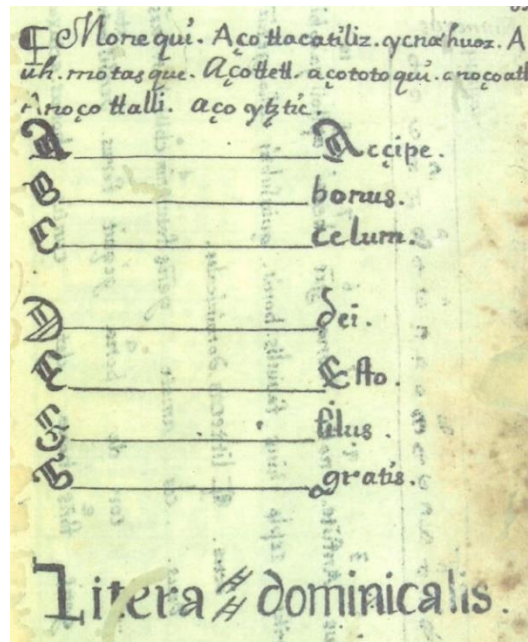 ¶ Monequi. Aço tlacatiliz. ycnahuoz. A
uh. motasque. Açotletl. açototoqui. anoçoatl
Anoço tlalli. aço ytztic.
A Accipe.
B bonus.
C celum.
D dei.
E Esto.
F filus.
G gratis.
Litera dominicalis.